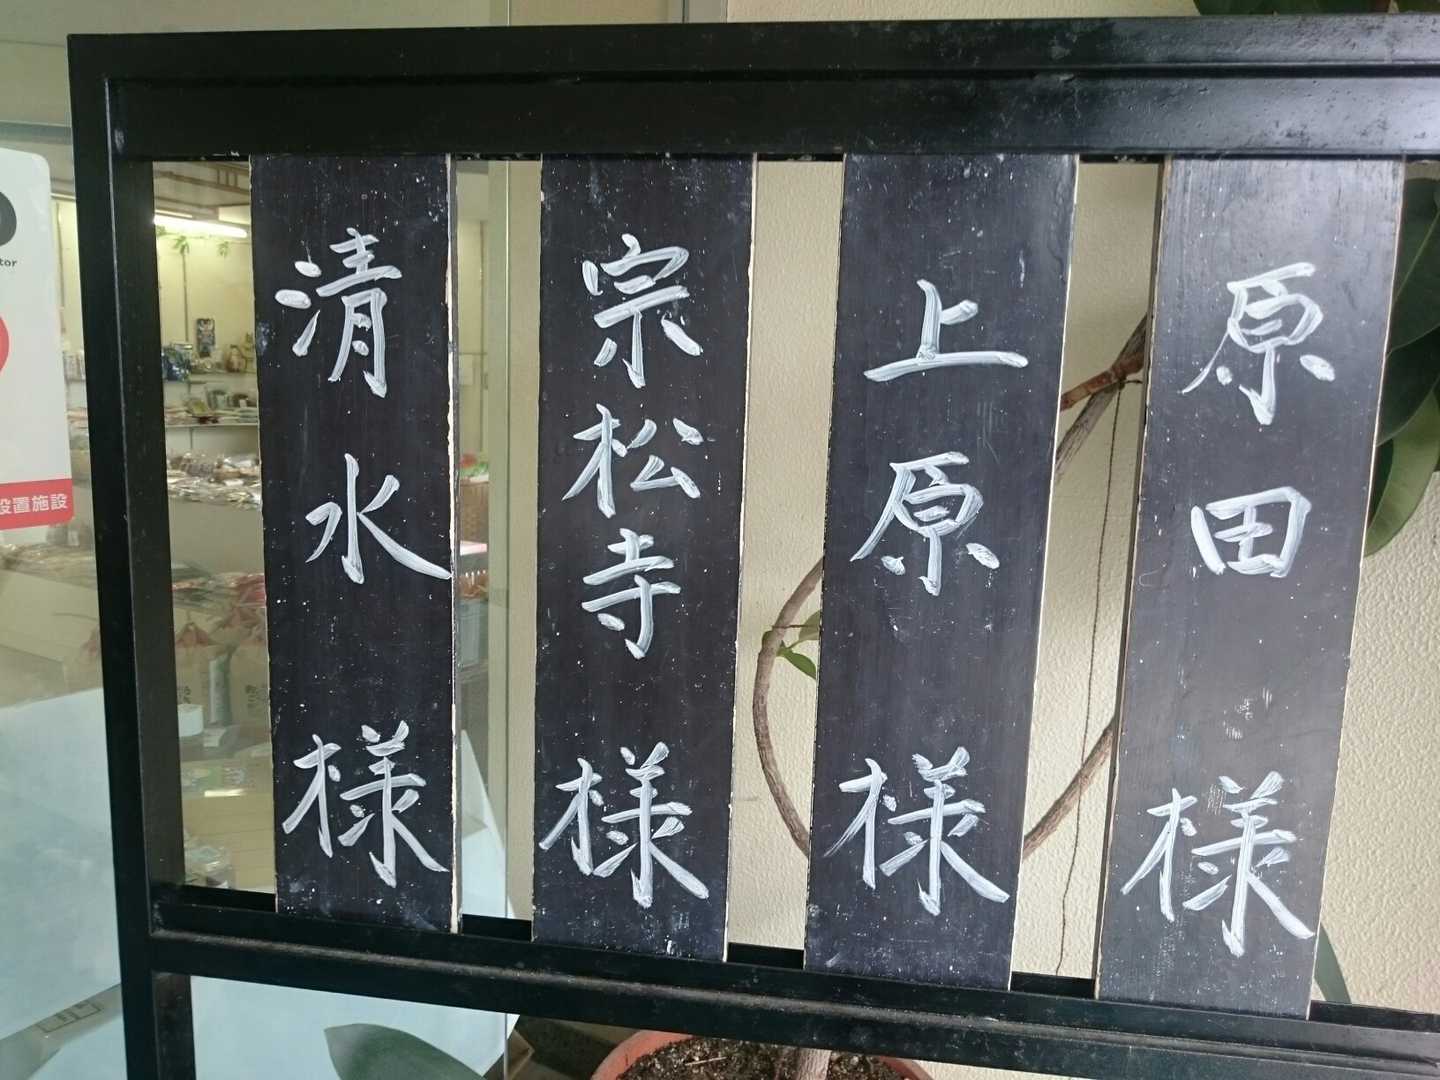 原田様
上原様
宗松寺様
清水様
tor
設置施設